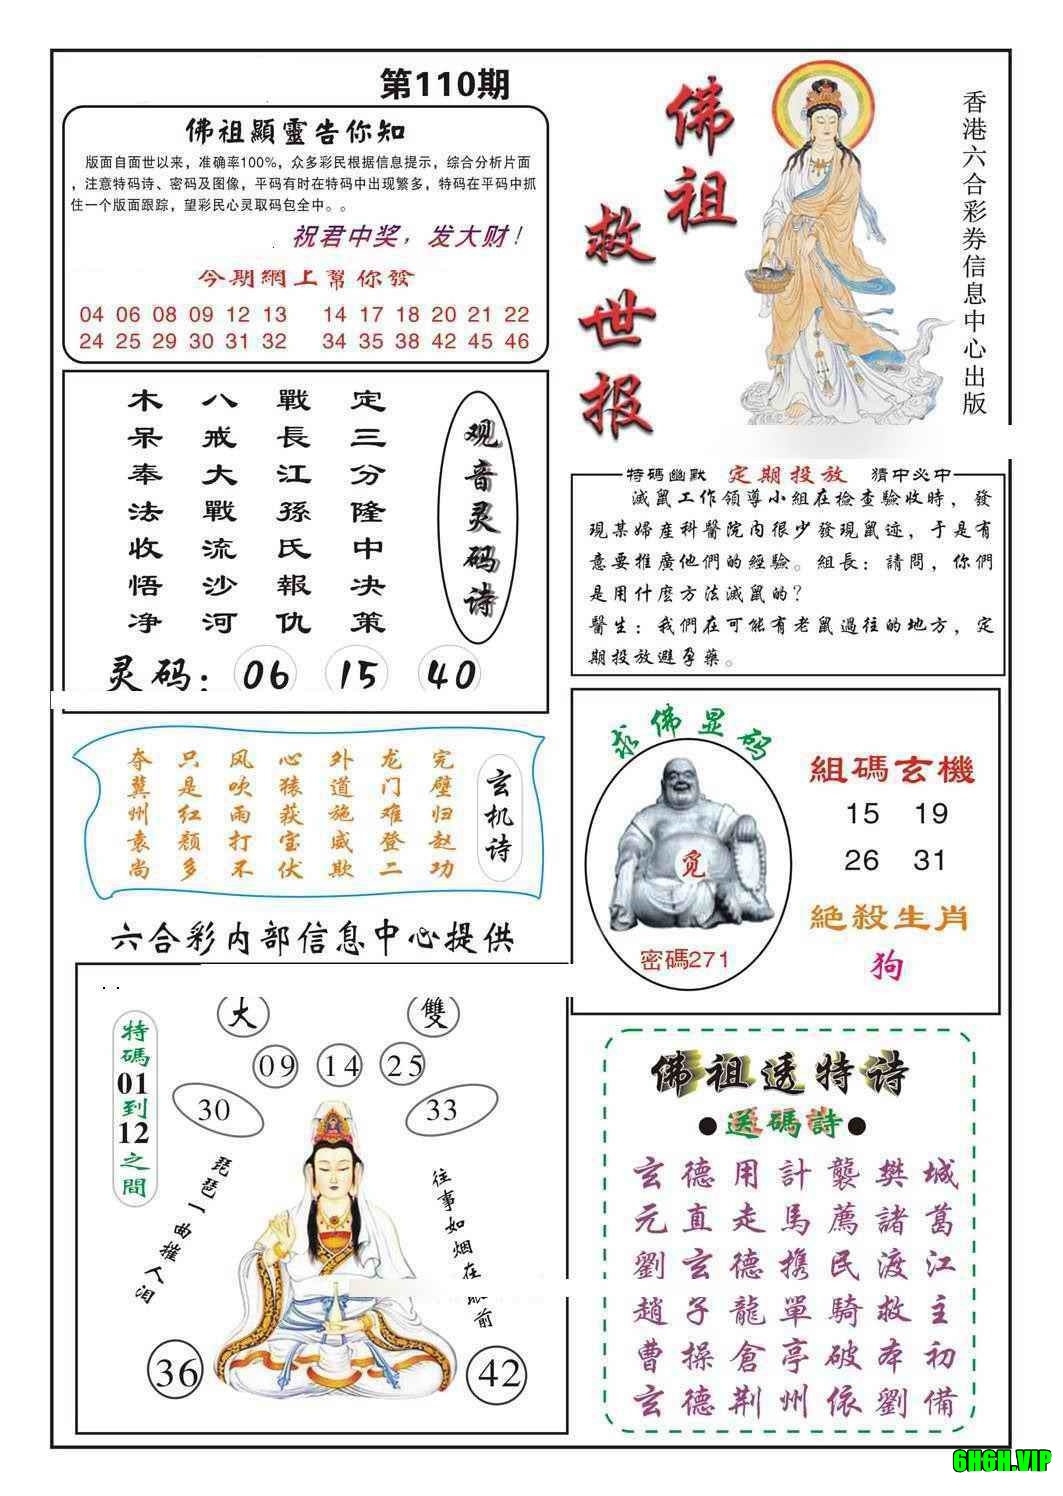 第110期
佛祖顯靈告你知
版面自面世以来，准确率100%，众多彩民根据信息提示，综合分析片面
，注意特码诗、密码及图像，平码有时在特码中出现繁多，特码在平码中抓
住一个版面跟踪，望彩民心灵取码包全中。。
祝君中奖，发大财！
今期網上幫你發
04 06 08 09 12 13 14 17 18 20 21 22
24 25 29 30 31 32 34 35 38 42 45 46
佛祖救世报
香港六合彩券信息中心出版
观音灵码诗
定三分隆中决策
戰長江孫氏報仇
八戒大戰流沙河
木呆奉法收悟净
灵码：06 15 40
特碼幽默 定期投放 猜中必中
滅鼠工作領導小組在檢查驗收時，發
現某婦産科醫院內很少發現鼠迹，于是有
意要推廣他們的經驗。組長：請問，你們
是用什麽方法滅鼠的？
醫生：我們在可能有老鼠過往的地方，定
期投放避孕藥。
玄机诗
完璧归赵功
龙门难登二
外道施威欺
心猿获宝伏
风吹雨打不
只是红颜多
夺冀州袁尚
求佛显码
觅
密碼271
組碼玄機
15 19
26 31
絕殺生肖
狗
六合彩内部信息中心提供
大 雙
特碼01到12之間
09 14 25
30 33
琵琶一曲摧人泪
往事如烟在眼前
36 42
佛祖透特诗
●送碼詩●
玄德用計襲樊城
元直走馬薦諸葛
劉玄德携民渡江
趙子龍單騎救主
曹操倉亭破本初
玄德荆州依劉備
6H6H.VIP